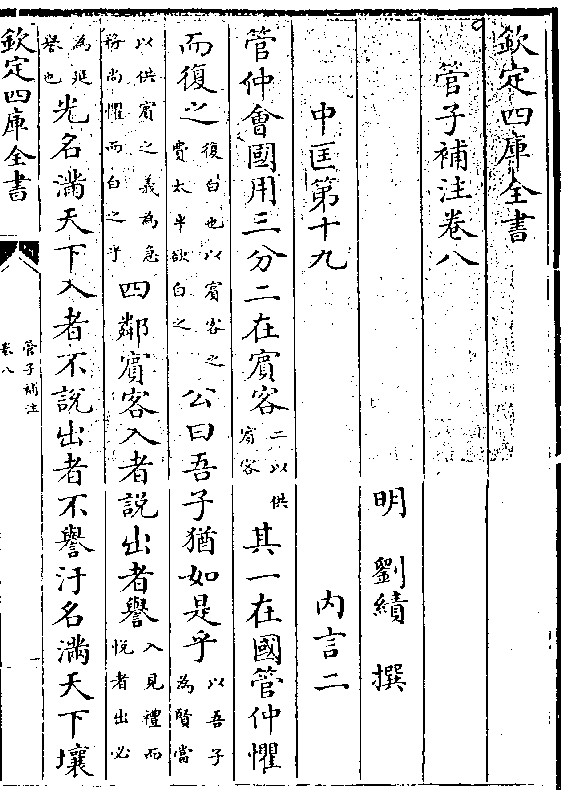 欽定四庫全書
管子補注卷八
明　劉績　撰
中匡第十九　內言二
管仲會國用三分二在賓客二以供賓客其一在國管仲懼
而復之復白也以賓客之費太半欲白之公曰吾子猶如是乎以吾子為賢當
以供賓之義為急將尚懼而白之乎四鄰賓客入者說出者譽入見禮而悅者出必
為延譽也光名滿天下入者不說出者不譽汙名滿天下壤
欽定四庫全書
管子補注
卷八